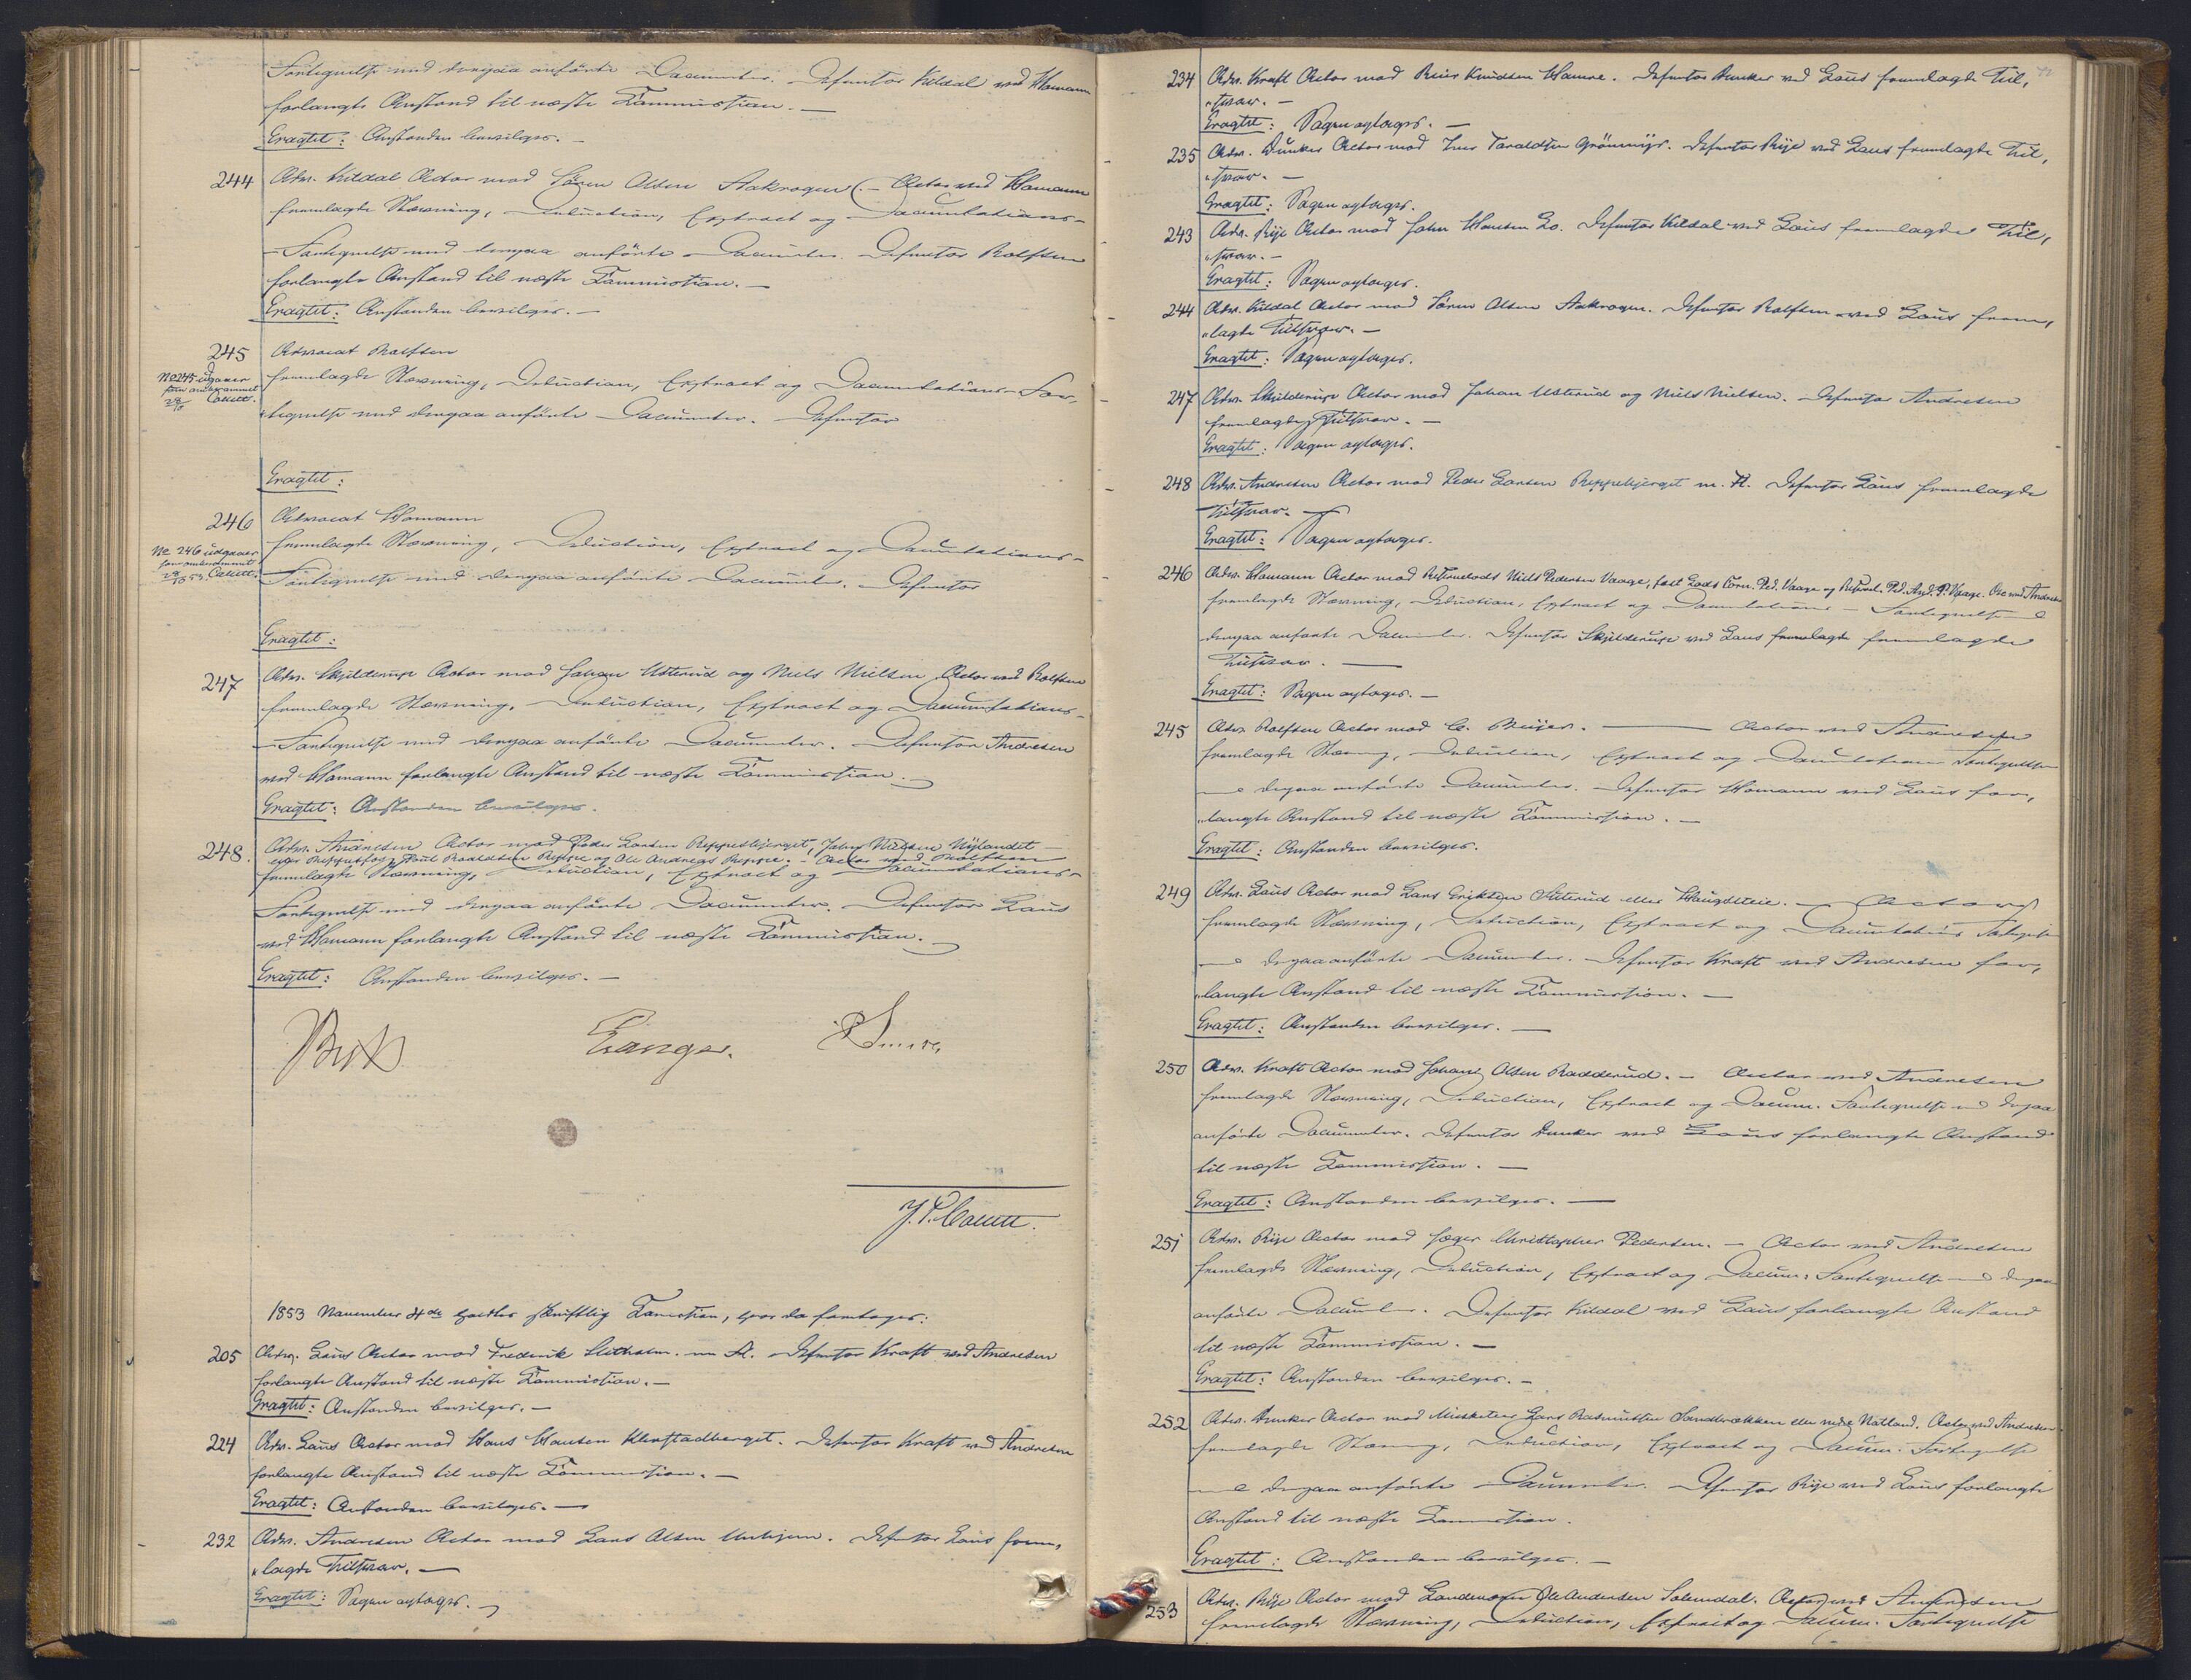 Fortegnelse med derpaa anførte Documenter. Defensor Kildal ved Homann
forlangte Anstand til næste Kommission. —
Eragtet: Anstanden bevilges. —
244 Adv. Kildal Actor mod Søren Olsen Aakrogen. — Actor ved Homann
fremlagde Stævning, Deduction, Extract og Documentations-
Fortegnelse med derpaa anførte Documenter. Defensor Rolfsen
forlangte Anstand til næste Kommission. —
Eragtet: Anstanden bevilges. —
245 Advocat Rolfsen
No 245 udgaaer
som omberammet
Collett.
fremlagde Stævning, Deduction, Extract og Documentations-For-
tegnelse med derpaa anførte Documenter. Defensor
Eragtet:
246 Advocat Homann
No 246 udgaaer
som omberammet
Collett.
fremlagde Stævning, Deduction, Extract og Documentations-
Fortegnelse med derpaa anførte Documenter. Defensor
Eragtet:
247 Adv. Skjilderup Actor mod Johan Usterud og Niels Nielsen Actor ved Rolfsen
fremlagde Stævning, Deduction, Extract og Documentations-
Fortegnelse med derpaa anførte Documenter. Defensor Andresen
ved Homann forlangte Anstand til næste Kommission.
Eragtet: Anstanden bevilges.
248. Adv. Andresen Actor mod Peder Larsen Reppesbjerget, John Nielsen Nylandet
eller Poul Reppe og Ole Andreas Reppe. — Actor ved Rolfsen
fremlagte Stævning, Deduction, Extract og Documentations-
Fortegnelse med derpaa anførte Documenter. Defensor Laus
ved Homann forlangte Anstand til næste Kommission.
Eragtet: Anstanden bevilges. —
Manger.
1853 November 4de holdtes skriftlig Kamission, hvor da foretoges:
205 Adv. Laus Actor mod Frederik m. Fl. Defensor Kraft ved Andresen
forlangte Anstand til næste Kommission. —
Eragtet: Anstanden bevilges. —
224 Adv. Laus Actor mod Hans Hansen Klevstadberget. Defensor Kraft ved Andresen
forlangte Anstand til næste Kommission. —
Eragtet: Anstanden bevilges. —
232 Adv. Andresen Actor mod Lars Olsen Defensor Laus frem-
lagde Tilsvar. —
Eragtet: Sagen optages. —
234 Adv. Kraft Actor mod Reier Knudsen Hamre. Defensor Dunker ved Laus fremlagde Til-
svar. —
Eragtet: Sagen optages. —
235 Adv. Dunker Actor mod Taraldsen Grønmyr. Defensor Rije ved Laus fremlagde Til-
svar. —
Eragtet: Sagen optages.
243 Adv. Rije Actor mod John Hansen Lo. Defensor Kildal ved Laus fremlagde Til-
svar. —
Eragtet: Sagen optages.
244 Adv. Kildal Actor mod Søren Olsen Aakrogen. Defensor Rolfsen ved Laus frem-
lagde Tilsvar. —
Eragtet: Sagen optages.
247 Adv. Skjilderup Actor mod Johan Usterud og Niels Nielsen. Defensor Andresen
fremlagde Tilsvar. —
Eragtet: Sagen optages.
248 Adv. Andresen Actor mod Peder Larsen Reppesbjerget m. Fl. Defensor Laus fremlagde
Tilsvar. —
Eragtet: Sagen optages.
246 Adv. Homann Actor mod Niels Pedersen Vaage, Ped. Vaage og Ped. And. P. Vaage. Act. ved Andresen
fremlagde Stævning, Deduction, Extract og Documentations-Fortegnelse med
derpaa anførte Documenter. Defensor Skjilderup ved Laus fremlagde fremlagde
Tilsvar. —
Eragtet: Sagen optages. —
245 Adv. Rolfsen Actor mod C. Meijer. — Actor ved Andresen
fremlagde Stævning, Deduction, Extract og Documentations Fortegnelse
med derpaa anførte Documenter. Defensor Homann ved Laus for-
langte Anstand til næste Kommission. —
Eragtet: Anstanden bevilges.
249 Adv. Laus Actor mod Lars Eriksen Sæterud eller Haugsteie. — Actor ved
fremlagde Stævning, Deduction, Extract og Documentations Fortegnelse
med derpaa anførte Documenter. Defensor Kraft ved Andresen for-
langte Anstand til næste Kommission. —
Eragtet: Anstanden bevilges. —
250 Adv. Kraft Actor mod Johans Olsen Radderud. — Actor ved Andresen
fremlagde Stævning, Deduction, Extract og Docum. Fortegnelse med derpaa
anførte Documenter. Defensor Dunker ved Laus forlangte Anstand
til næste Kommission. —
Eragtet: Anstanden bevilges. —
251 Adv. Rije Actor mod Jæger Christopher Pedersen. — Actor ved Andresen
fremlagde Stævning, Deduction, Extract og Docum. Fortegnelse med derpaa
anførte Documenter. Defensor Kildal ved Laus forlangte Anstand
til næste Kommission. —
Eragtet: Anstanden bevilges. —
252 Adv. Dunker Actor mod Musketeer Lars Rasmussen Sandbrækken eller nedre Natland. Actor ved Andresen
fremlagde Stævning, Deduction, Extract og Docum. Fortegnelse
med derpaa anførte Documenter. Defensor Rije ved Laus forlangte
Anstand til næste Kommission.
Eragtet: Anstanden bevilges. —
253 Adv. Rije Actor mod Ole Andersen Solemdal. Actor ved Andresen
fremlagde Stævning, Deduction, Extract og Docum. Fortegnelse